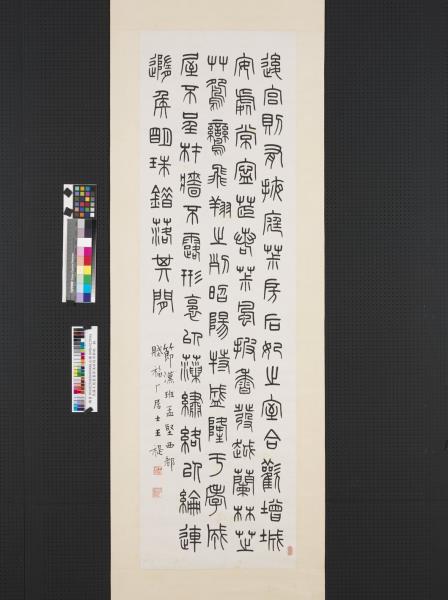 後宮則有掖庭茮房后妃之室合歡增城
安處常寧茞若茮風披香發越蘭林
艸鴛鸞飛翔之列昭陽特盛隆乎孝成
屋不呈材牆不露形裛以藻繡絡以綸連
隨侯明珠錯落其間
節漢班孟堅西都
賦福厂居士王禔